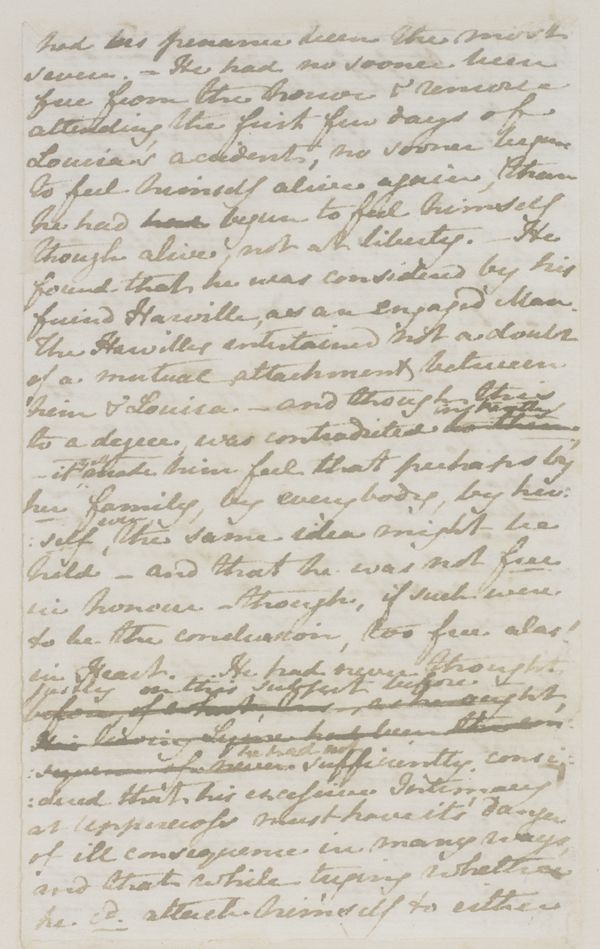 had his penance been the most
severe. – He had no sooner been
free from the horror & remorse
attending the first few days of
Louisa's accident, no sooner begun
to feel himself alive again, than
he had had begun to feel himself
though alive, not at liberty. – He
found that he was considered by his
friend Harville, as an engaged Man.
The Harvilles entertained not a doubt
of a mutual attachment between
him & Louisa. – and though this
to a degree, was contradicted instantly
– it yet made him feel that perhaps by
her family, by everybody, by her:
:self even, the same idea might be
held – and that he was not free
in honour – though, if such were
to be the conclusion, too free alas!
in Heart. – He had never thought
justly on this subject before
his leaving Lyme had been the con:
:sequence of he had not never sufficiently consi:
:dered that his excessive Intimacy
at Uppercross must have it's Danger
of ill consequence in many ways,
and that while trying whether
he cd. attach himself to either